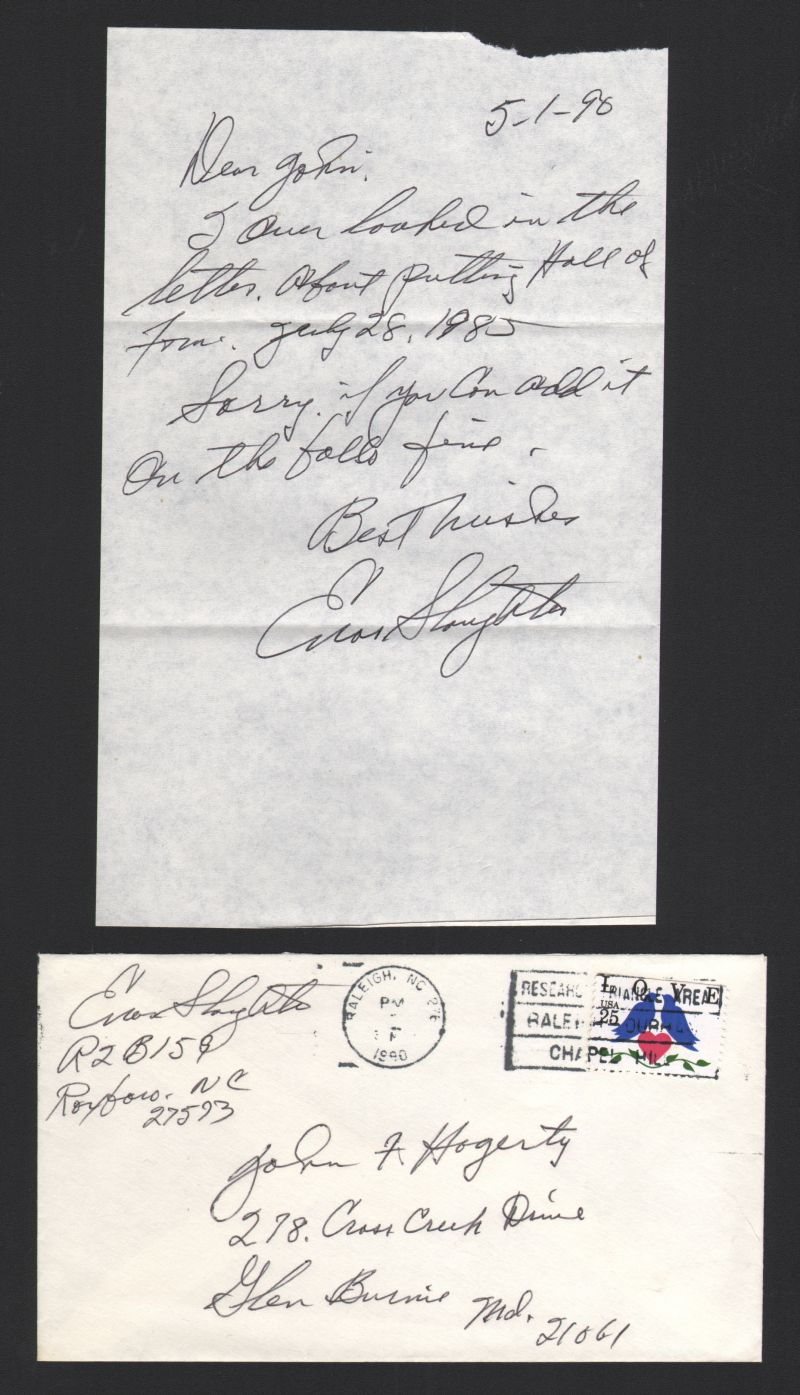 5-1-90
Dear John.
I over looked in the
letter. About putting Hall of
Fame. July 28, 1985
Sorry. if you Can add it
On the
fine.
Best Wishes
Enos Slaughter
Enos Slaughter
R2 B159
Roxboro. NC
27573
RALEIGH, NC
PM
1990
RESEARCH TRIANGLE AREA
RALEIGH DURHAM
CHAPEL HILL
LOVE
USA
25
John F Hogerty
278. Cross Creek Drive
Glen Burnie Md.
21061